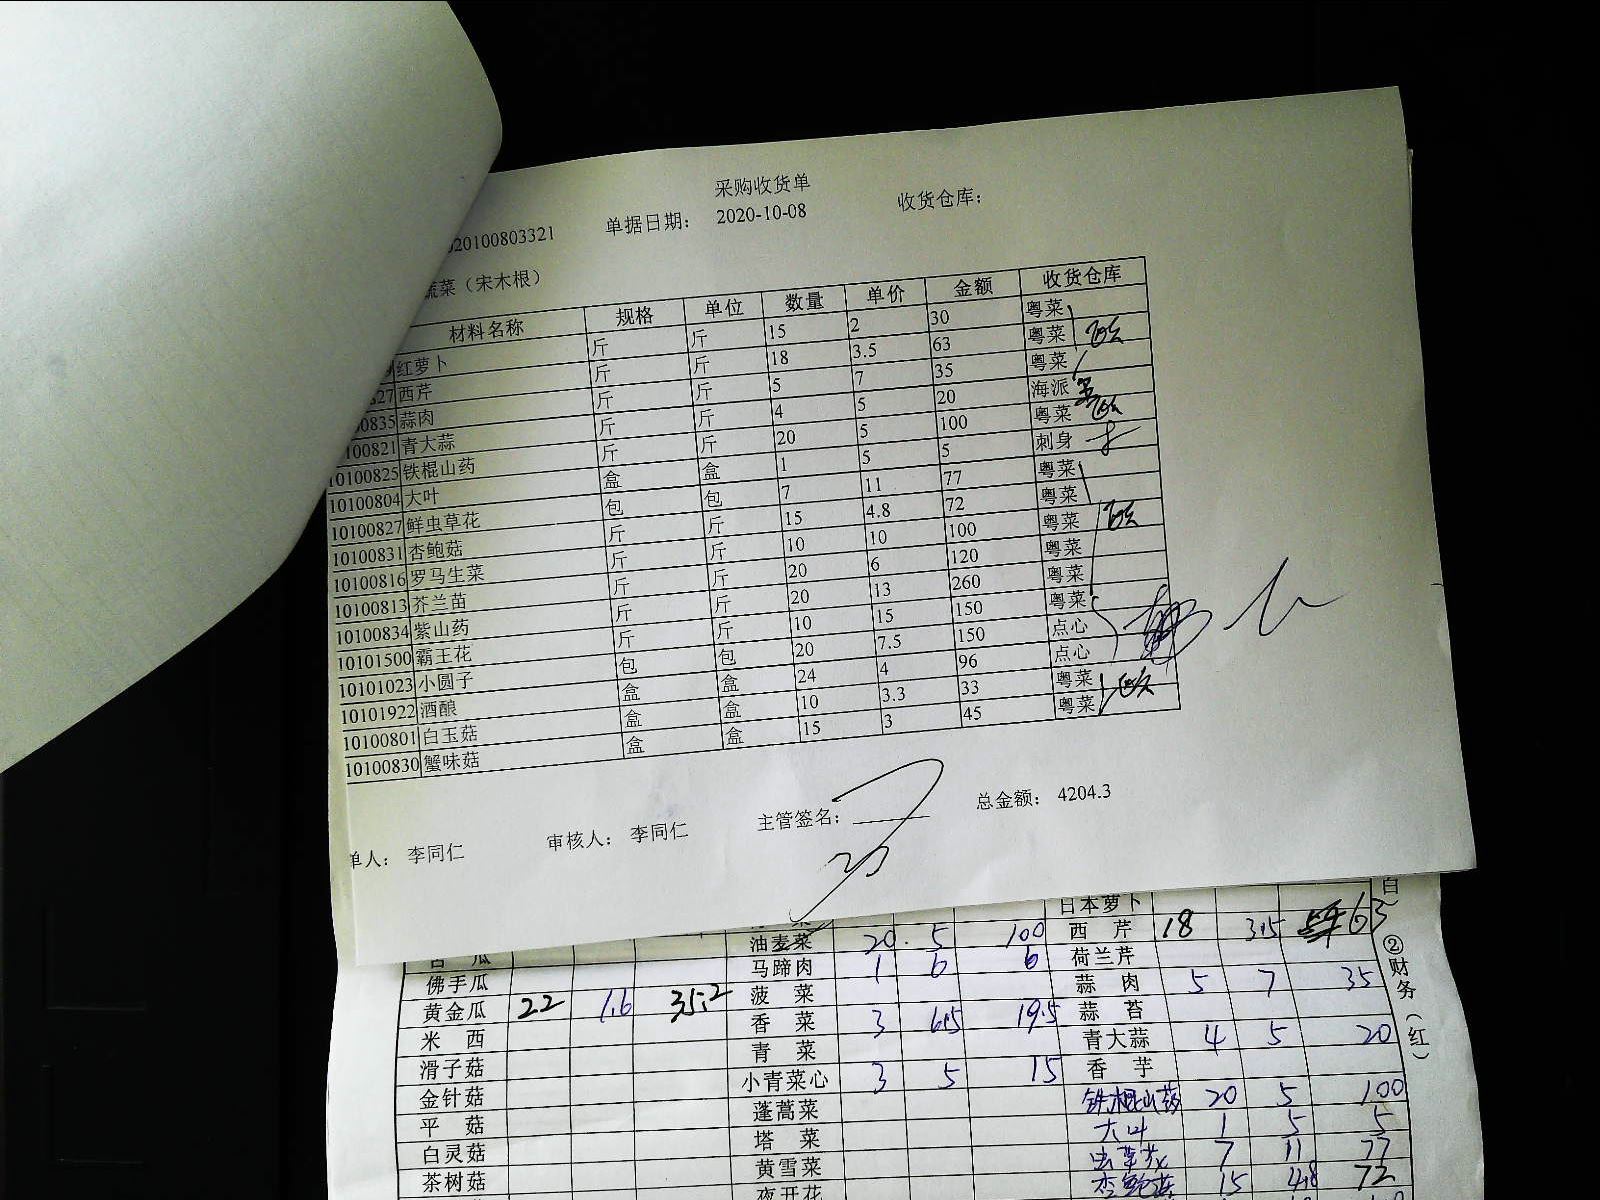 采购收货单
020100803321 单据日期： 2020-10-08 收货仓库：
蔬菜（宋木根）
材料名称 规格 单位 数量 单价 金额 收货仓库
红萝卜 斤 斤 15 2 30 粤菜
827 西芹 斤 斤 18 3.5 63 粤菜
00835 蒜肉 斤 斤 5 7 35 粤菜
100821 青大蒜 斤 斤 4 5 20 海派
10100825 铁棍山药 斤 斤 20 5 100 粤菜
10100804 大叶 盒 盒 1 5 5 刺身
10100827 鲜虫草花 包 包 7 11 77 粤菜
10100831 杏鲍菇 斤 斤 15 4.8 72 粤菜
10100816 罗马生菜 斤 斤 10 10 100 粤菜
10100813 芥兰苗 斤 斤 20 6 120 粤菜
10100834 紫山药 斤 斤 20 13 260 粤菜
10101500 霸王花 斤 斤 10 15 150 粤菜
10101023 小圆子 包 包 20 7.5 150 点心
10101922 酒酿 盒 盒 24 4 96 点心
10100801 白玉菇 盒 盒 10 3.3 33 粤菜
10100830 蟹味菇 盒 盒 15 3 45 粤菜
单人： 李同仁 审核人： 李同仁 主管签名： 总金额： 4204.3
日本萝卜
瓜 油麦菜 20 5 100 西芹 18 3.5 63
佛手瓜 马蹄肉 1 6 6 荷兰芹
黄金瓜 22 1.6 35.2 菠菜 蒜肉 5 7 35
米西 香菜 3 6.5 19.5 蒜苔
滑子菇 青菜 青大蒜 4 5 20
金针菇 小青菜心 3 5 15 香芋
平菇 蓬蒿菜 铁棍山药 20 5 100
白灵菇 塔菜 大叶 1 5 5
茶树菇 黄雪菜 虫草花 7 11 77
夜开花 杏鲍菇 15 4.8 72
白）
②财务（红）